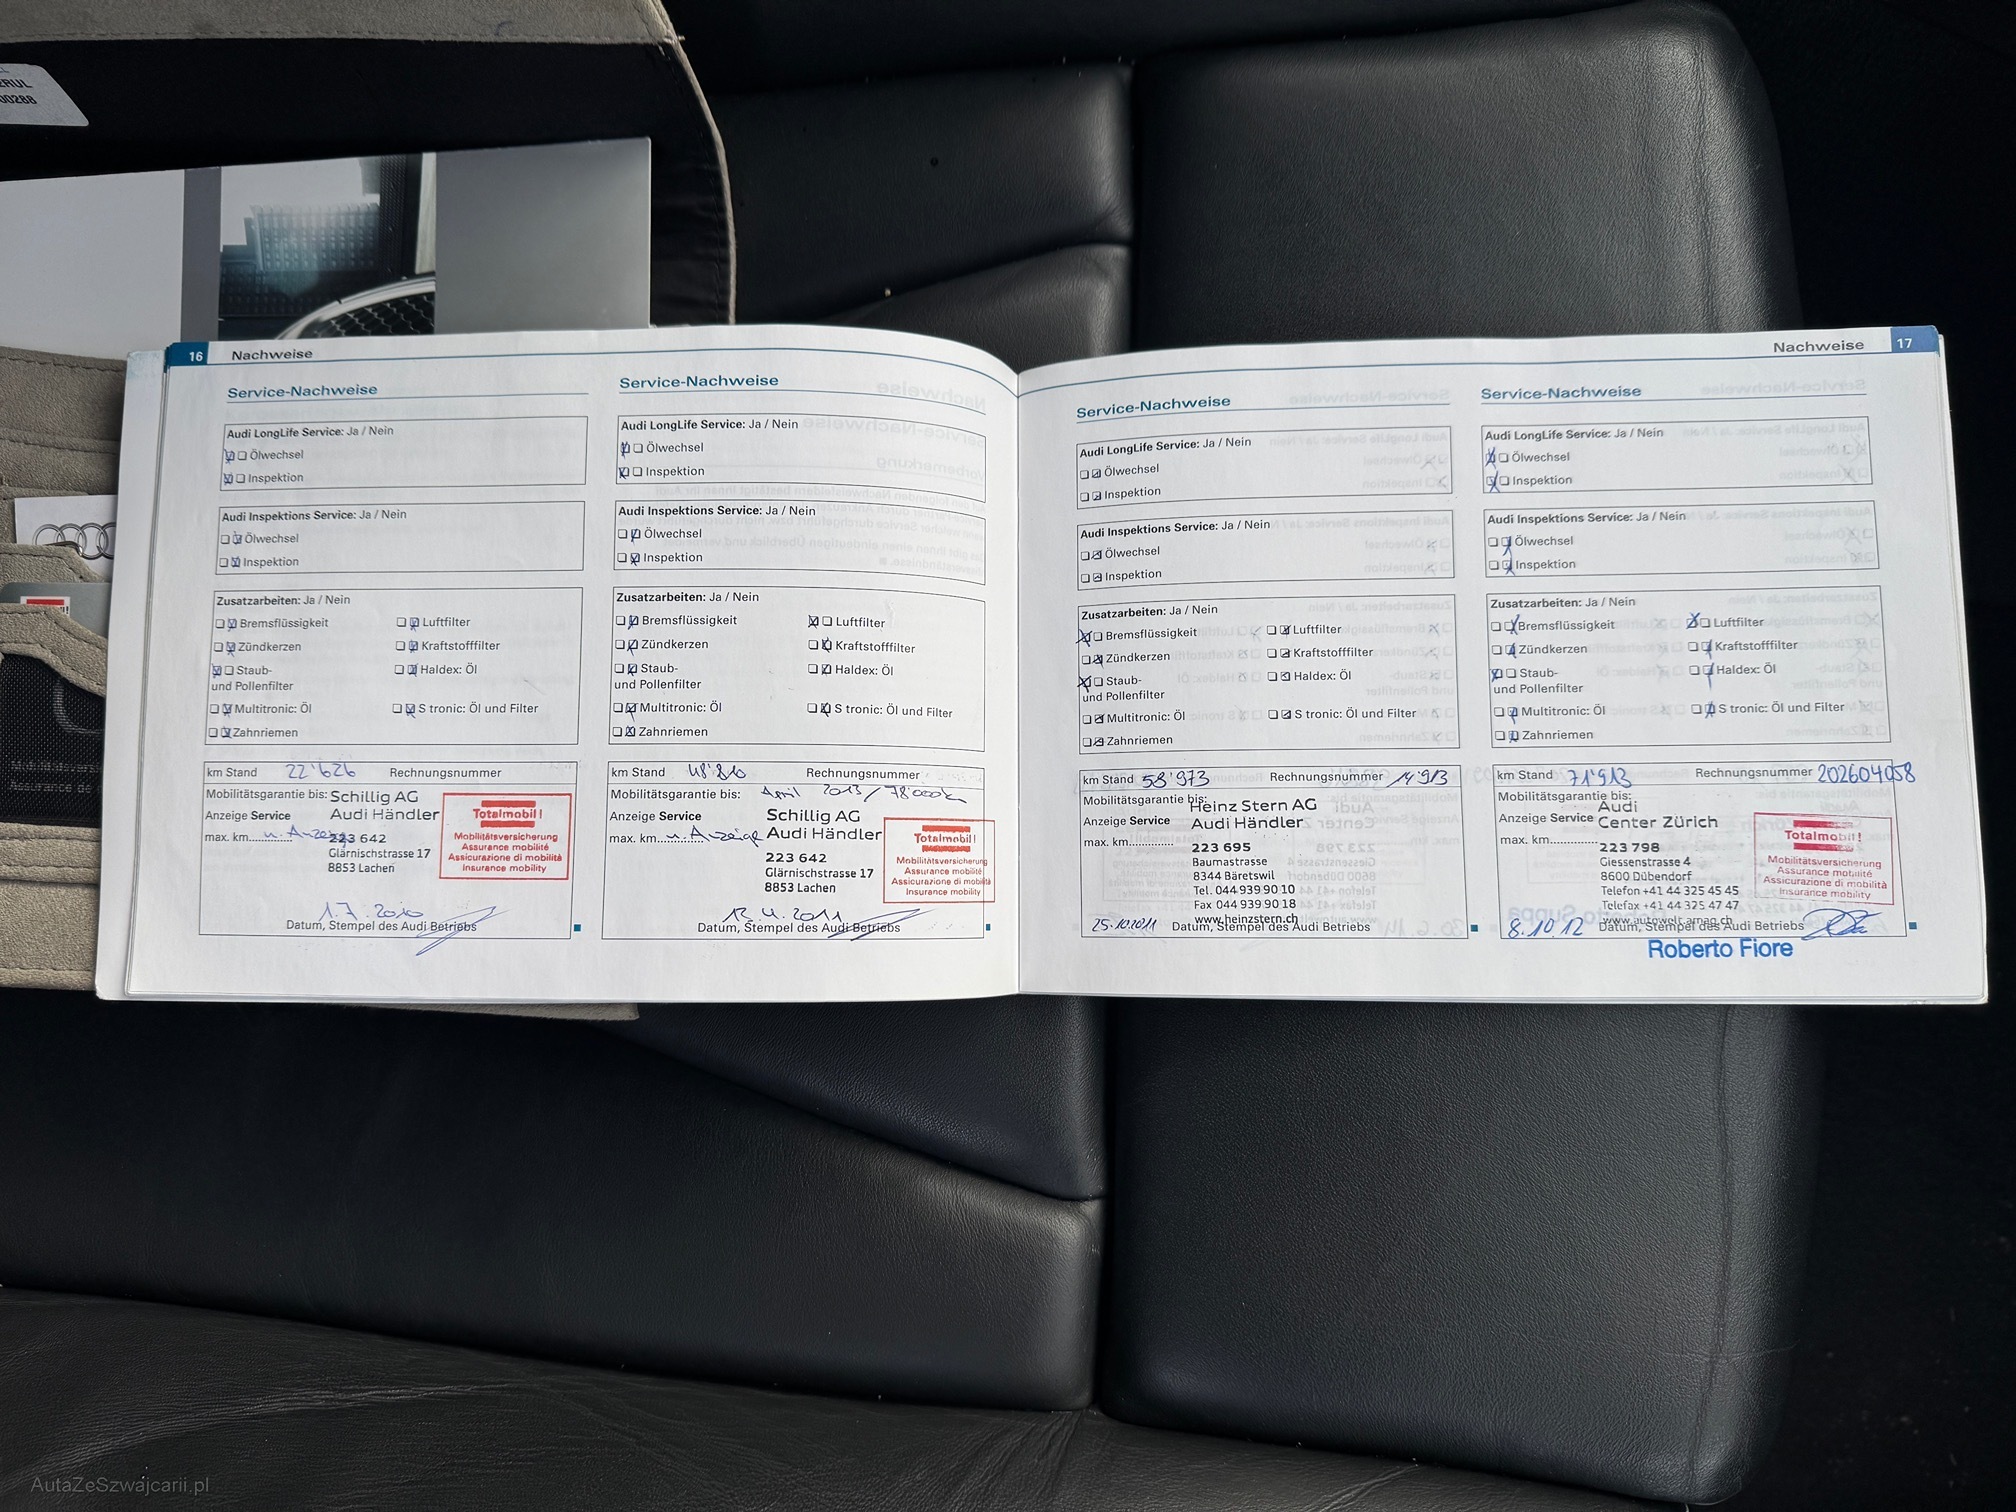 ZRUL
00288
16 Nachweise
Service-Nachweise
Audi LongLife Service: Ja / Nein
Ölwechsel
Inspektion
Audi Inspektions Service: Ja / Nein
Ölwechsel
Inspektion
Zusatzarbeiten: Ja / Nein
Bremsflüssigkeit Luftfilter
Zündkerzen Kraftstofffilter
Staub- Haldex: Öl
und Pollenfilter
Multitronic: Öl S tronic: Öl und Filter
Zahnriemen
km Stand 22'626 Rechnungsnummer
Mobilitätsgarantie bis: Schillig AG
Anzeige Service Audi Händler
max. km............ n. Anzeige 223 642
Glärnischstrasse 17
8853 Lachen
Totalmobil!
Mobilitätsversicherung
Assurance mobilité
Assicurazione di mobilità
Insurance mobility
1.7.2010
Datum, Stempel des Audi Betriebs
Service-Nachweise
Audi LongLife Service: Ja / Nein
Ölwechsel
Inspektion
Audi Inspektions Service: Ja / Nein
Ölwechsel
Inspektion
Zusatzarbeiten: Ja / Nein
Bremsflüssigkeit Luftfilter
Zündkerzen Kraftstofffilter
Staub- Haldex: Öl
und Pollenfilter
Multitronic: Öl S tronic: Öl und Filter
Zahnriemen
km Stand Rechnungsnummer
Mobilitätsgarantie bis: April 2013 / 78'000km
Schillig AG
Anzeige Service Audi Händler
max. km............ n. Anzeige
223 642
Glärnischstrasse 17
8853 Lachen
Totalmobil!
Mobilitätsversicherung
Assurance mobilité
Assicurazione di mobilità
Insurance mobility
13.4.2011
Datum, Stempel des Audi Betriebs
Nachweise 17
Service-Nachweise
Audi LongLife Service: Ja / Nein
Ölwechsel
Inspektion
Audi Inspektions Service: Ja / Nein
Ölwechsel
Inspektion
Zusatzarbeiten: Ja / Nein
Bremsflüssigkeit Luftfilter
Zündkerzen Kraftstofffilter
Staub- Haldex: Öl
und Pollenfilter
Multitronic: Öl S tronic: Öl und Filter
Zahnriemen
km Stand 58'973 Rechnungsnummer 14'913
Mobilitätsgarantie bis:
Heinz Stern AG
Anzeige Service Audi Händler
max. km............
223 695
Baumastrasse
8344 Bäretswil
Tel. 044 939 90 10
Fax 044 939 90 18
www.heinzstern.ch
25.10.2011 Datum, Stempel des Audi Betriebs
Service-Nachweise
Audi LongLife Service: Ja / Nein
Ölwechsel
Inspektion
Audi Inspektions Service: Ja / Nein
Ölwechsel
Inspektion
Zusatzarbeiten: Ja / Nein
Bremsflüssigkeit Luftfilter
Zündkerzen Kraftstofffilter
Staub- Haldex: Öl
und Pollenfilter
Multitronic: Öl S tronic: Öl und Filter
Zahnriemen
km Stand 71'913 Rechnungsnummer 202604058
Mobilitätsgarantie bis:
Audi
Anzeige Service Center Zürich
max. km............
223 798
Giessenstrasse 4
8600 Dübendorf
Telefon +41 44 325 45 45
Telefax +41 44 325 47 47
www.autowelt.amag.ch
Totalmobil!
Mobilitätsversicherung
Assurance mobilité
Assicurazione di mobilità
Insurance mobility
8.10.12 Datum, Stempel des Audi Betriebs
Roberto Fiore
AutaZeSzwajcarii.pl